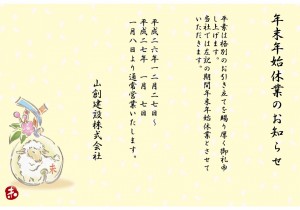 年末年始休業のお知らせ
平素は格別のお引き立てを賜り厚く御礼申
し上げます。
当社では左記の期間年末年始休業とさせて
いただきます。
平成二六年一二月二七日～
平成二七年 一月 七日
一月八日より通常営業いたします。
山創建設株式会社
未